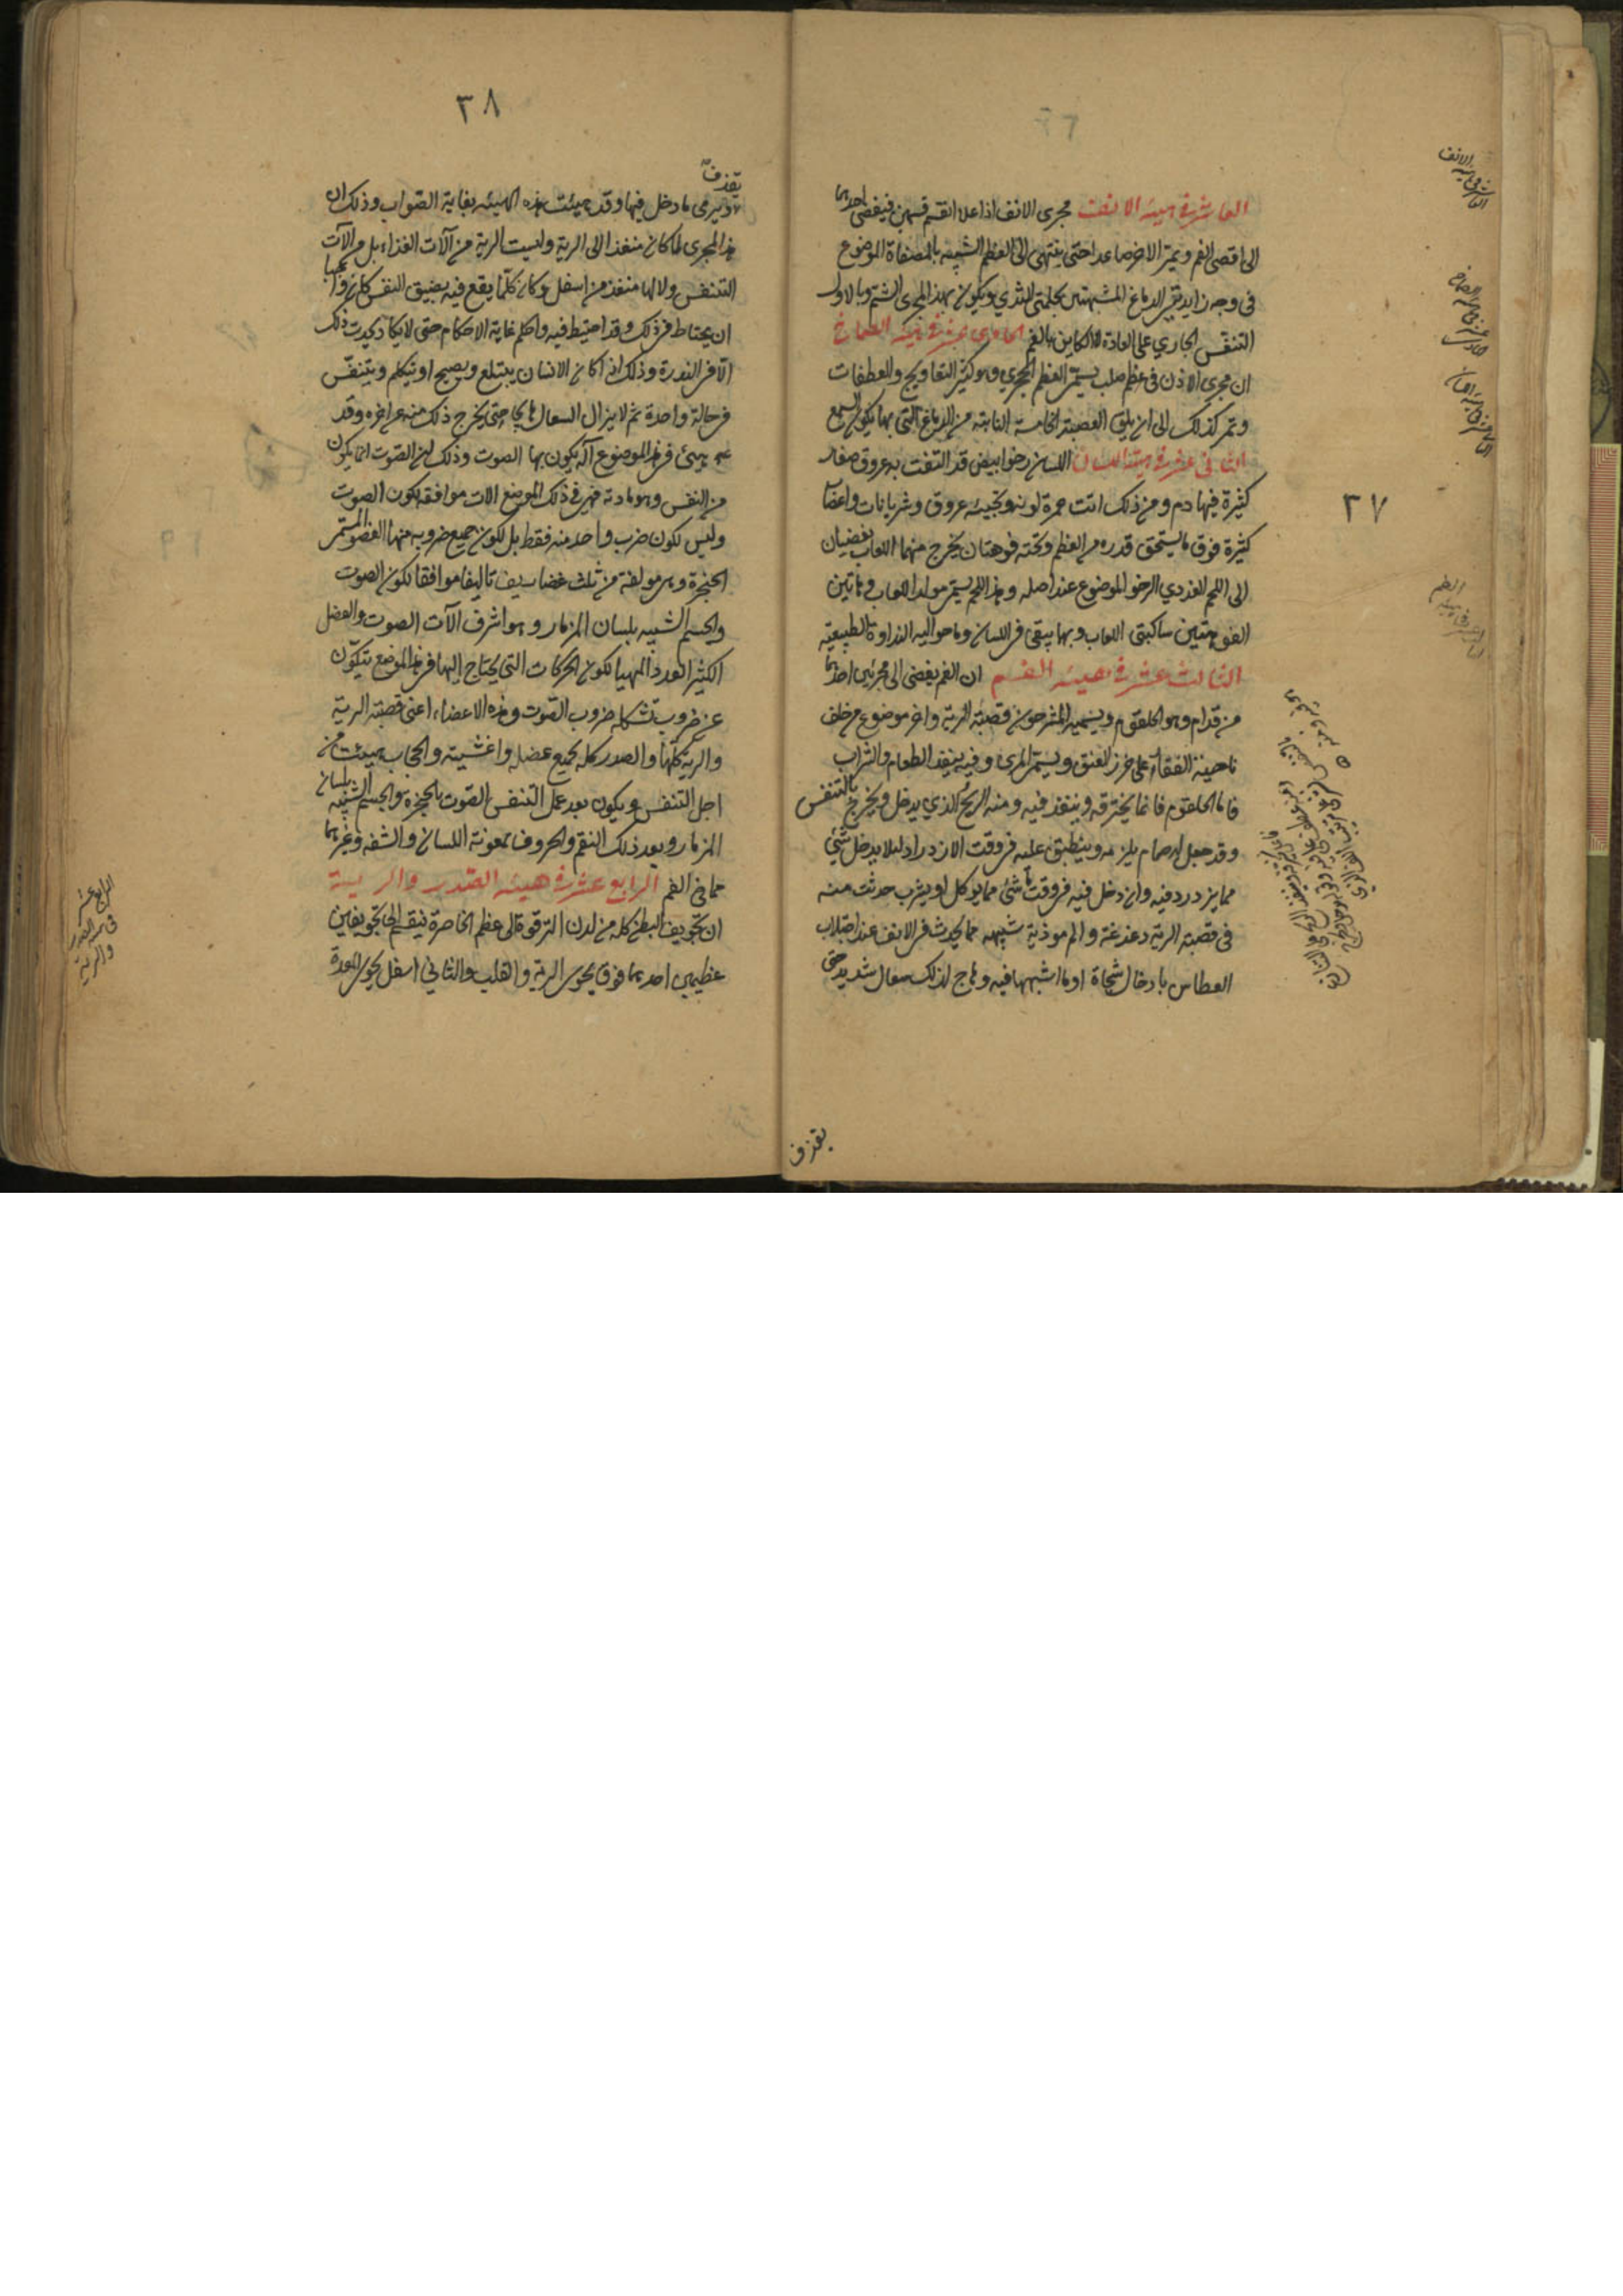 العاشر في هيئة الانف مجرى الانف اذا علا انقسم قسمين فيفضي احدهما
الى اقصى الفم ويمر الاخر صاعدا حتى ينتهي الى العظم الشبيه بالمصفاة الموضوع
في وجه زايدتي الدماغ المشبهتين بحلمتي الثدي ويكون بهذا المجرى الشم وبالاول
التنفس الجاري على العادة لا الكاين بالفم الحادي عشر في هيئة الصماخ
ان مجرى الاذن في عظم صلب يسمى العظم الحجري وهو كثير التعاويج والعطفات
ويمر كذلك الى ان يلقى العصبة الخامسة النابتة من الدماغ التي بها يكون السمع
الثاني عشر في هيئة اللسان اللسان رخو ابيض قد التفت به عروق صغار
كثيرة فيها دم ومن ذلك اتت حمرة لونه وتجيئه عروق وشريانات واعصاب
كثيرة فوق ما يستحق قدره من العظم وتحته فوهتان يخرج منهما اللعاب يفضيان
الى اللحم الغددي الرخو الموضوع عند اصله وهذا اللحم يسمى مولد اللعاب وهاتين
الفوهتين ساكبتي اللعاب وبها يبقى في اللسان وما حواليه النداوة الطبيعية
الثالث عشر في هيئة الفم ان الفم يفضي الى مجريين احدهما
من قدام وهو الحلقوم ويسميه المشرحون قصبة الرية واخر موضوع من خلف
ناحية القفا على خرز العنق ويسمى المرى وفيه ينفذ الطعام والشراب
فاما الحلقوم فانما يخترقه وينفذ فيه ومنه الريح الذي يدخل ويخرج بالتنفس
وقد جعل له صمام يلزمه وينطبق عليه في وقت الازدراد ليلا يدخل شي
مما يزدرد فيه وان دخل فيه في وقت ما شي مما يوكل او يشرب حدثت منه
في قصبة الرية دغدغة والم موذية شبيهه مما يحدث في الانف عند اجتلاب
العطاس بادخال شحاة او ما اشبهها فيه وهاج لذلك سعال شديد حتى
يقذف
٣٧
٣٨
يقذف
ويرمي ما دخل فيها وقد هيئت هذه الهيئه بغاية الصواب وذلك ان
هذا المجرى لما كان منفذا الى الرية وليست الرية من آلات الغذاء بل من آلات
التنفس ولا لها منفذ من اسفل وكان كلما يقع فيه يضيق النفس كان واجبا
ان يحتاط في ذلك وقد احتيط فيه واحكم غاية الاحكام حتى لا يكاد يحدث ذلك
الا في الندرة وذلك اذا كان الانسان يبتلع ويصيح او يتكلم ويتنفس
في حالة واحدة ثم لا يزال السعال هايجا حتى يخرج ذلك منه عن اخره وقد
هيئ في هذا الموضوع آلة يكون بها الصوت وذلك لان الصوت انما يكون
من النفس وهو مادته فهيئ في ذلك الموضع الات موافقه لكون الصوت
وليس لكون ضرب واحد منه فقط بل لكون جميع ضروبه منها العضو المسمى
الحنجرة وهي مولفة من ثلث غضاريف تاليفا موافقا لكون الصوت
والجسم الشبيه بلسان المزمار وهو اشرف آلات الصوت والعضل
الكثير العدد المهيا لكون الحركات التي يحتاج اليها في هذا الموضع يتكون
عن ضروب تشكله ضروب الصوت وهذه الاعضاء اعني قصبة الرية
والرية كلها والصدر كله بجميع عضله واغشيته والحجاب هيئت من
اجل التنفس ويكون بعد عمل التنفس الصوت بالحنجرة والجسم الشبيه بلسان
المزمار وبعد ذلك النغم والحروف بمعونة اللسان والشفه وغيرهما
مما في الفم الرابع عشر في هيئة الصدر والرية
ان تجويف البطن كله من لدن الترقوة الى عظم الخاصرة ينقسم الى تجويفين
عظيمين احدهما فوق يحوي الرية والقلب والثاني اسفل يحوي المعدة
الرابع عشر
في هيئة الصدر
والرية